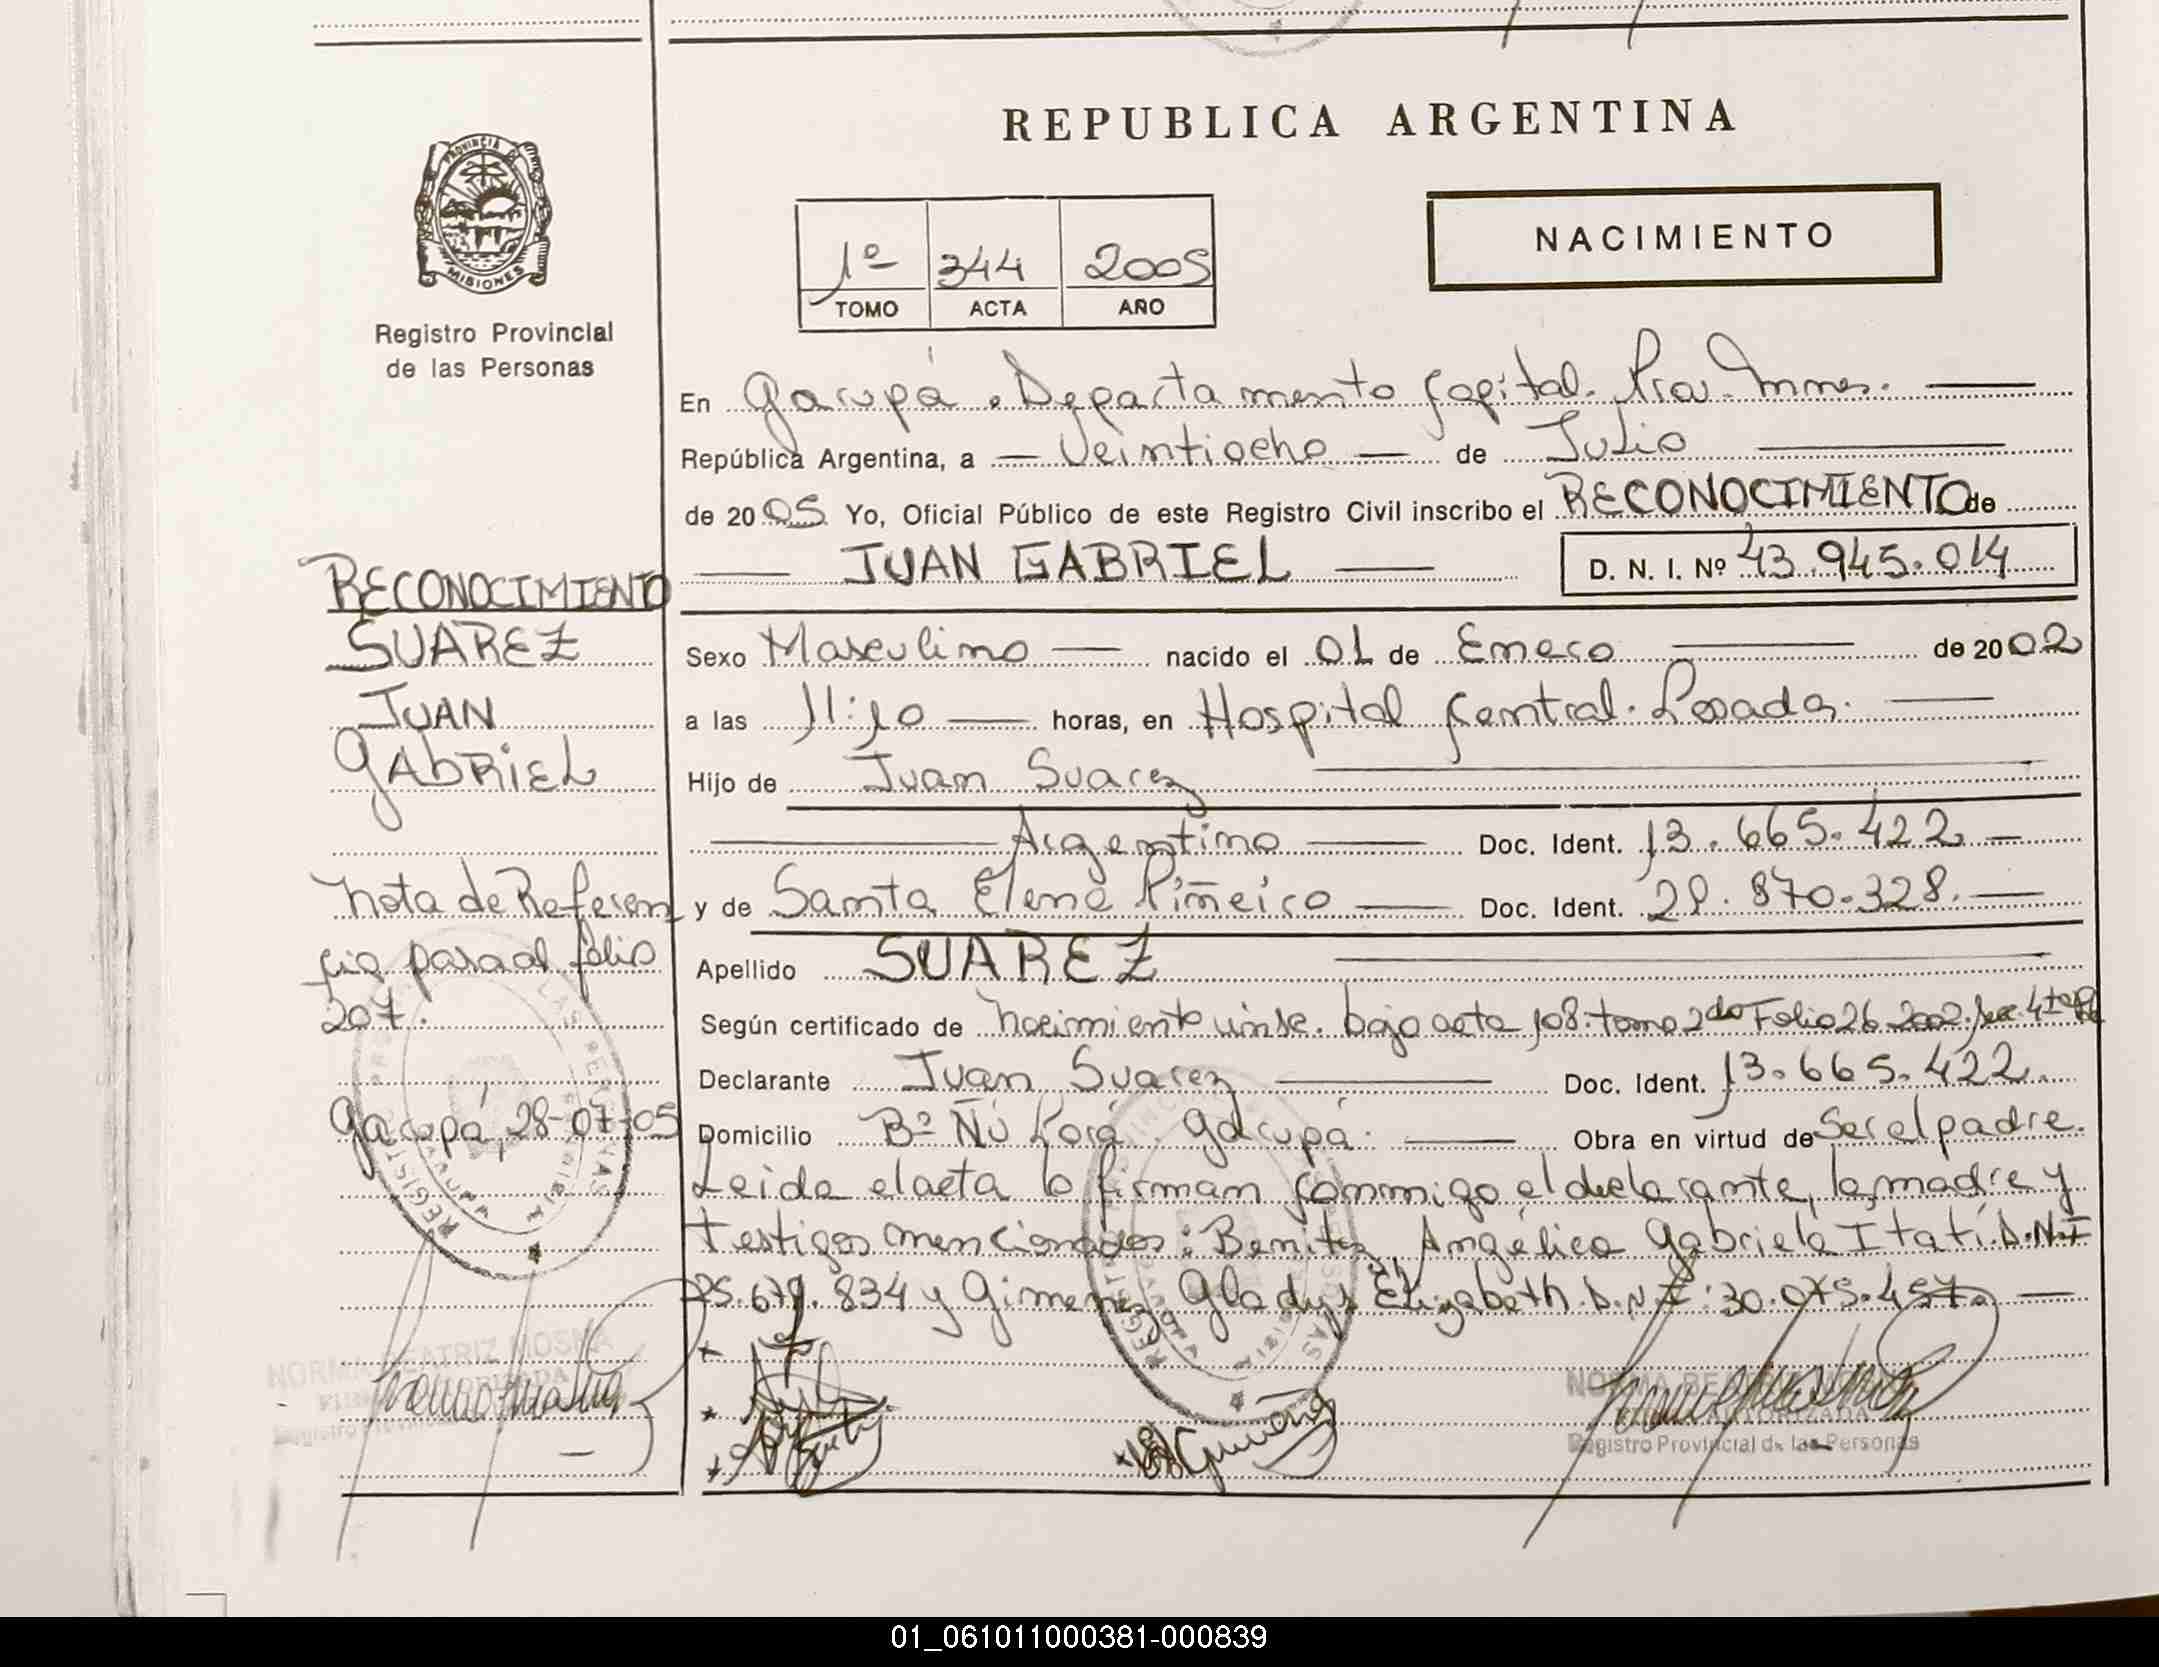 REPUBLICA ARGENTINA
PROVINCIA DE
MISIONES
Registro Provincial
de las Personas
1º 344 2005
TOMO ACTA AÑO
NACIMIENTO
En Garupá. Departamento Capital. Prov. Mnes.
República Argentina, a Veintiocho de Julio
de 2005 Yo, Oficial Público de este Registro Civil inscribo el RECONOCIMIENTO de
JUAN GABRIEL D. N. I. Nº 43.945.014
Sexo Masculino nacido el 01 de Enero de 2002
a las 11:10 horas, en Hospital Central. Posadas.
Hijo de Juan Suarez
Argentino Doc. Ident. 13.665.422
y de Santa Elena Piñeiro Doc. Ident. 28.870.328.
Apellido SUAREZ
Según certificado de Nacimiento insc. bajo acta 108. tomo 2do Folio 26. 2002.
Declarante Juan Suarez Doc. Ident. 13.665.422.
Domicilio Bº Ñú Porá. Garupá. Obra en virtud de Ser el padre.
Leida el acta lo firman conmigo el declarante, la madre y
testigos mencionados: Benitez, Angélica Gabriela Itatí. D.N.I
25.679.834 y Gimenez, Gladys Elizabeth. D.N.I: 30.075.457.
RECONOCIMIENTO
SUAREZ
JUAN
GABRIEL
Nota de Referen
cia pasa al folio
207.
Garupá, 28-07-05
NORMA BEATRIZ MOSMA
AUTORIZADA
Registro Provincial de las Personas
01_061011000381-000839